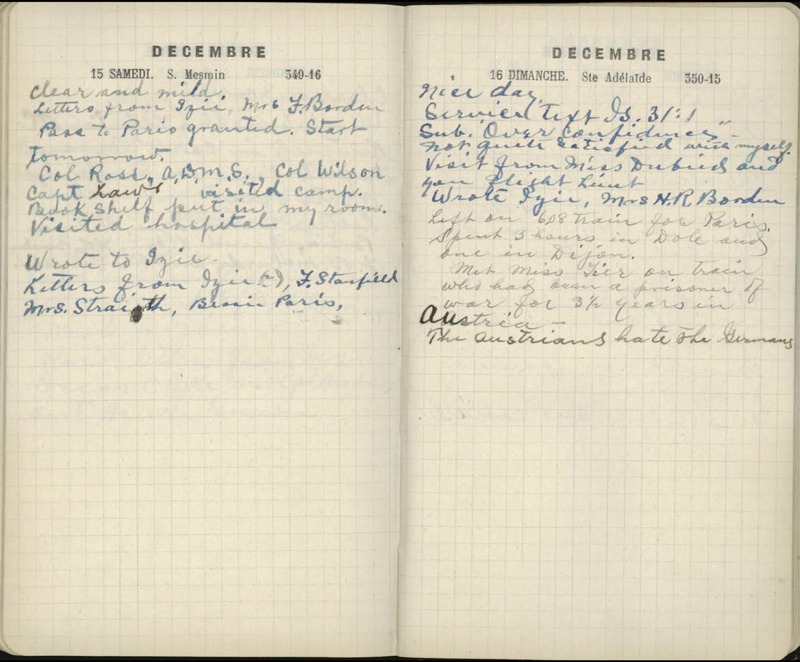 DECEMBRE
15 SAMEDI. S. Mesmin 349-16
clear and mild.
Letters from Izie, Mrs F. Borden
Pass to Paris granted. Start
tomorrow.
Col Ross, A.D.M.S., Col Wilson
Capt Laws visited camp.
Book shelf put in my room.
Visited hospital
Wrote to Izie.
Letters from Izie, F. Stanfield
Mrs. Straith, Paris,
DECEMBRE
16 DIMANCHE. Ste Adélaïde 350-15
Nice day.
Service (Text Is. 31:1
Sub. "Over Confidence" -
not quite satisfied with myself.
Visit from Miss and
Flight Lieut
Wrote Izie, Mrs H.R. Borden
Left on 6.08 train for Paris.
Spent 3 hours in Dole and
one in Dijon.
Met Miss on train
who had been a prisoner of
war for 3½ years in
Austria -
The Austrians hate the Germans